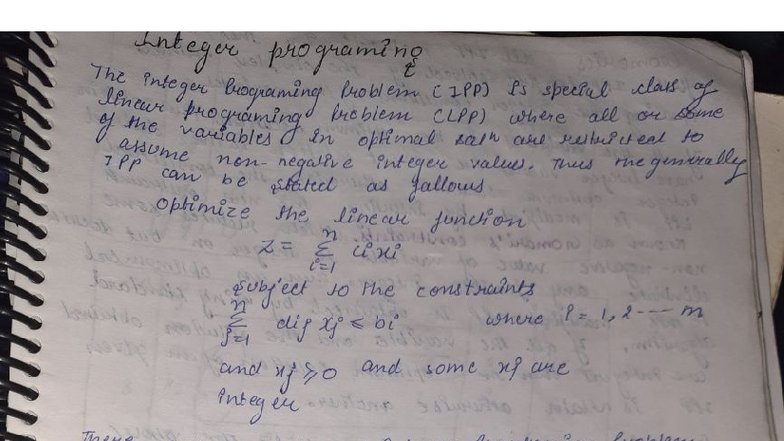 Integer programing
The integer Programing Problem (IPP) is special class of
linear programing Problem (LPP) where all or some
of the variables in optimal soln are restricted to
assume non-negative integer values. Thus the generally
IPP can be stated as fallows
optimize the linear function
z = n Σ i=1 ci xi
Subject to the constraints
n Σ j=1 dij xj ≤ bi where i = 1, 2 ---- m
and xj ≥ 0 and some xj are
integer